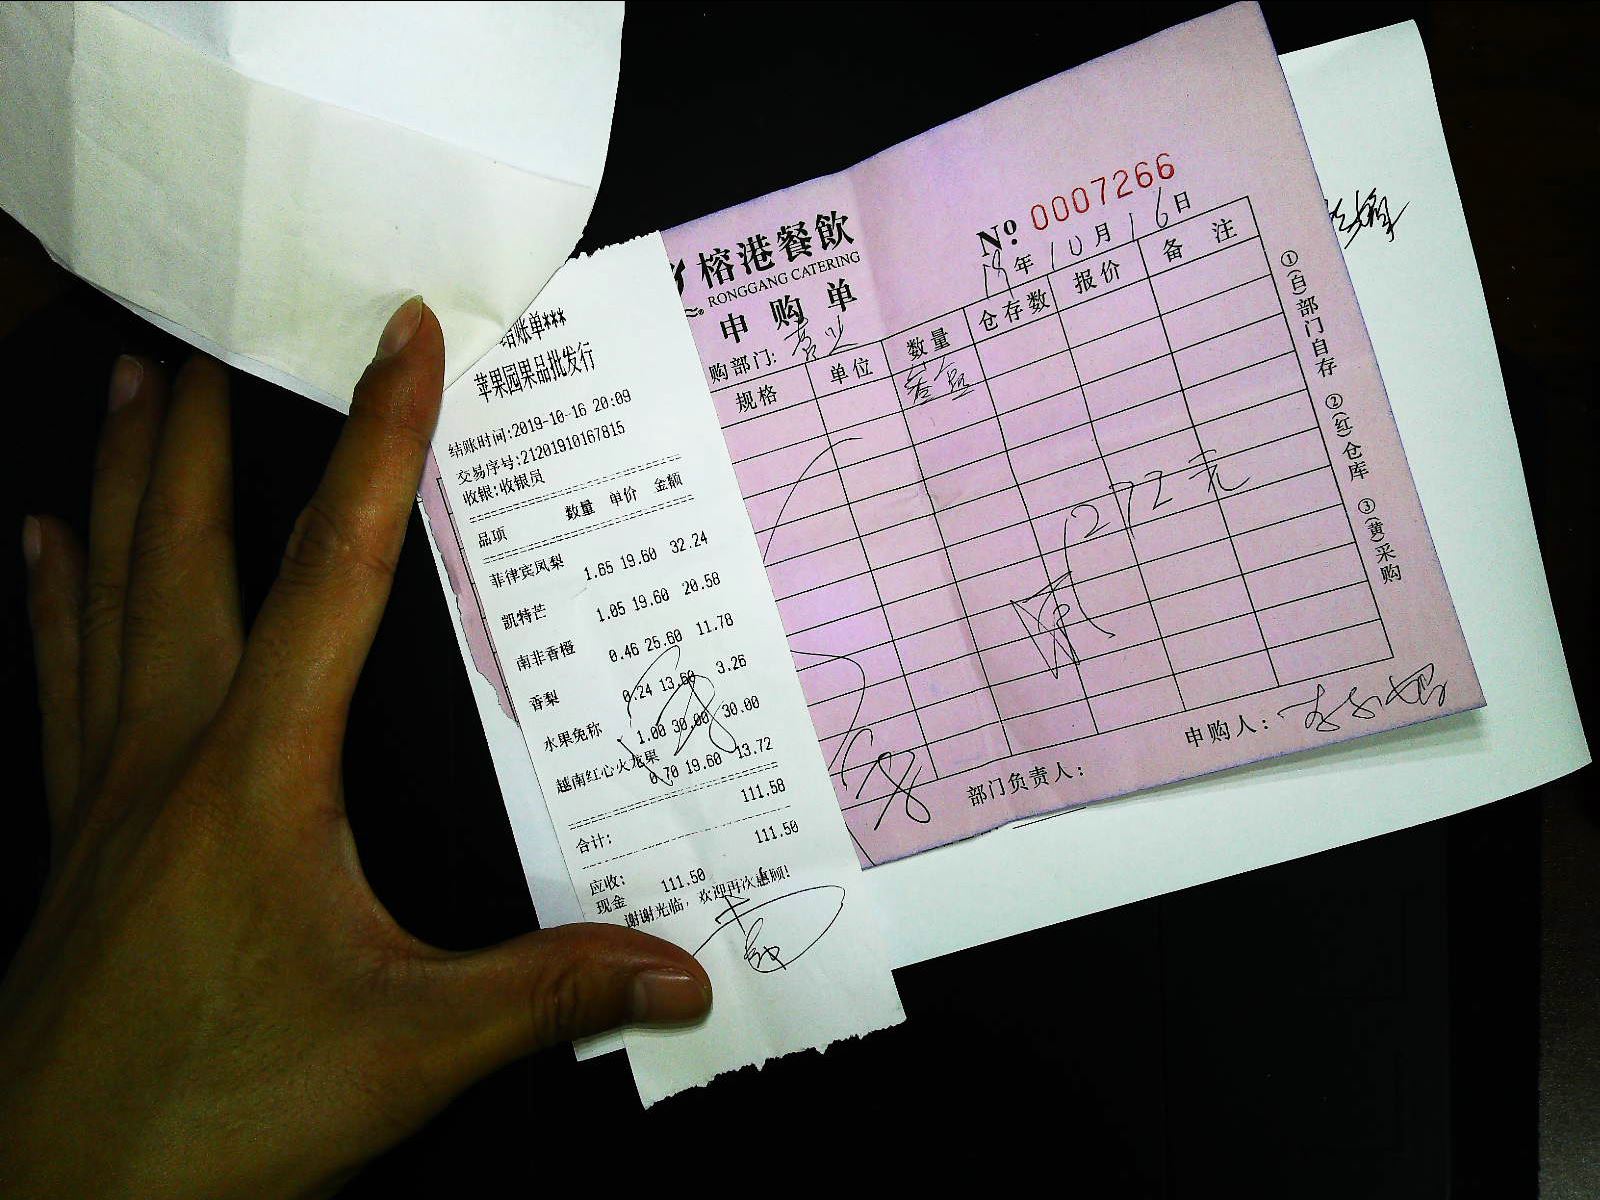 结账单***
苹果园果品批发行
结账时间:2019-10-16 20:09
交易序号:21201910167815
收银:收银员
品项 数量 单价 金额
菲律宾凤梨
1.65 19.60 32.24
凯特芒
1.05 19.60 20.58
南非香橙
0.46 25.60 11.78
香梨
0.24 13.60 3.26
水果免称
1.00 30.00 30.00
越南红心火龙果
0.70 19.60 13.72
合计: 111.58
应收: 111.50
现金 111.50
谢谢光临，欢迎再次惠顾!
榕港餐飲
RONGGANG CATERING
申购单
No. 0007266
19年10月16日
购部门: 营业
规格 单位 数量 仓存数 报价 备注
272元
①(白)部门自存 ②(红)仓库 ③(黄)采购
部门负责人:
申购人: